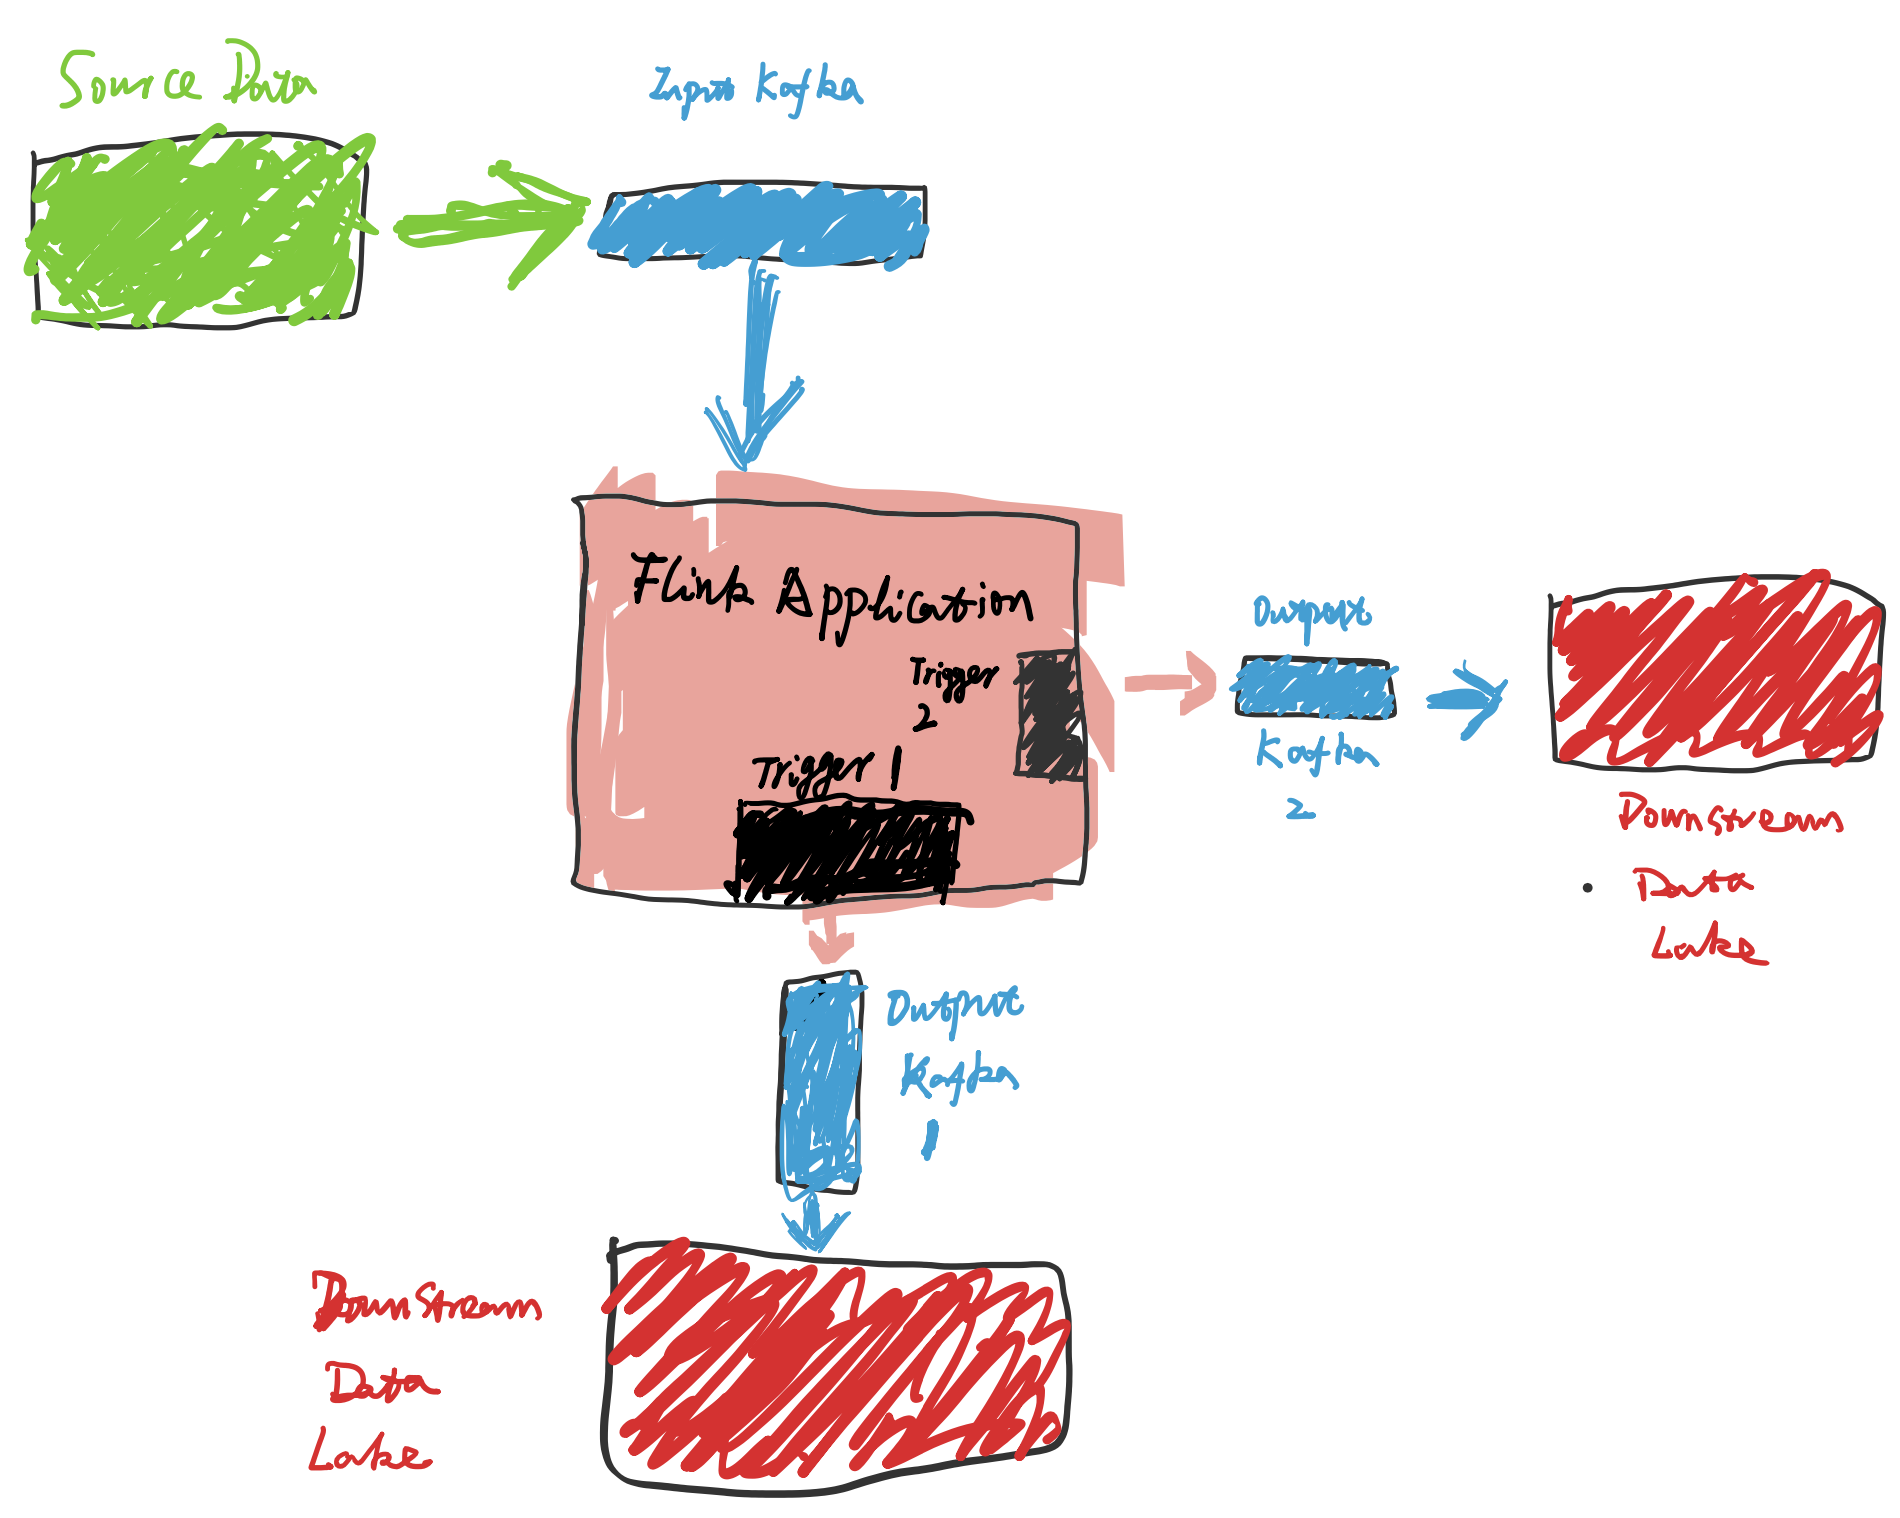 Source Data
Input Kafka
Flink Application
Trigger
2
Trigger 1
Output
Kafka
2
Downstream
Data
Lake
Output
Kafka
1
Downstream
Data
Lake